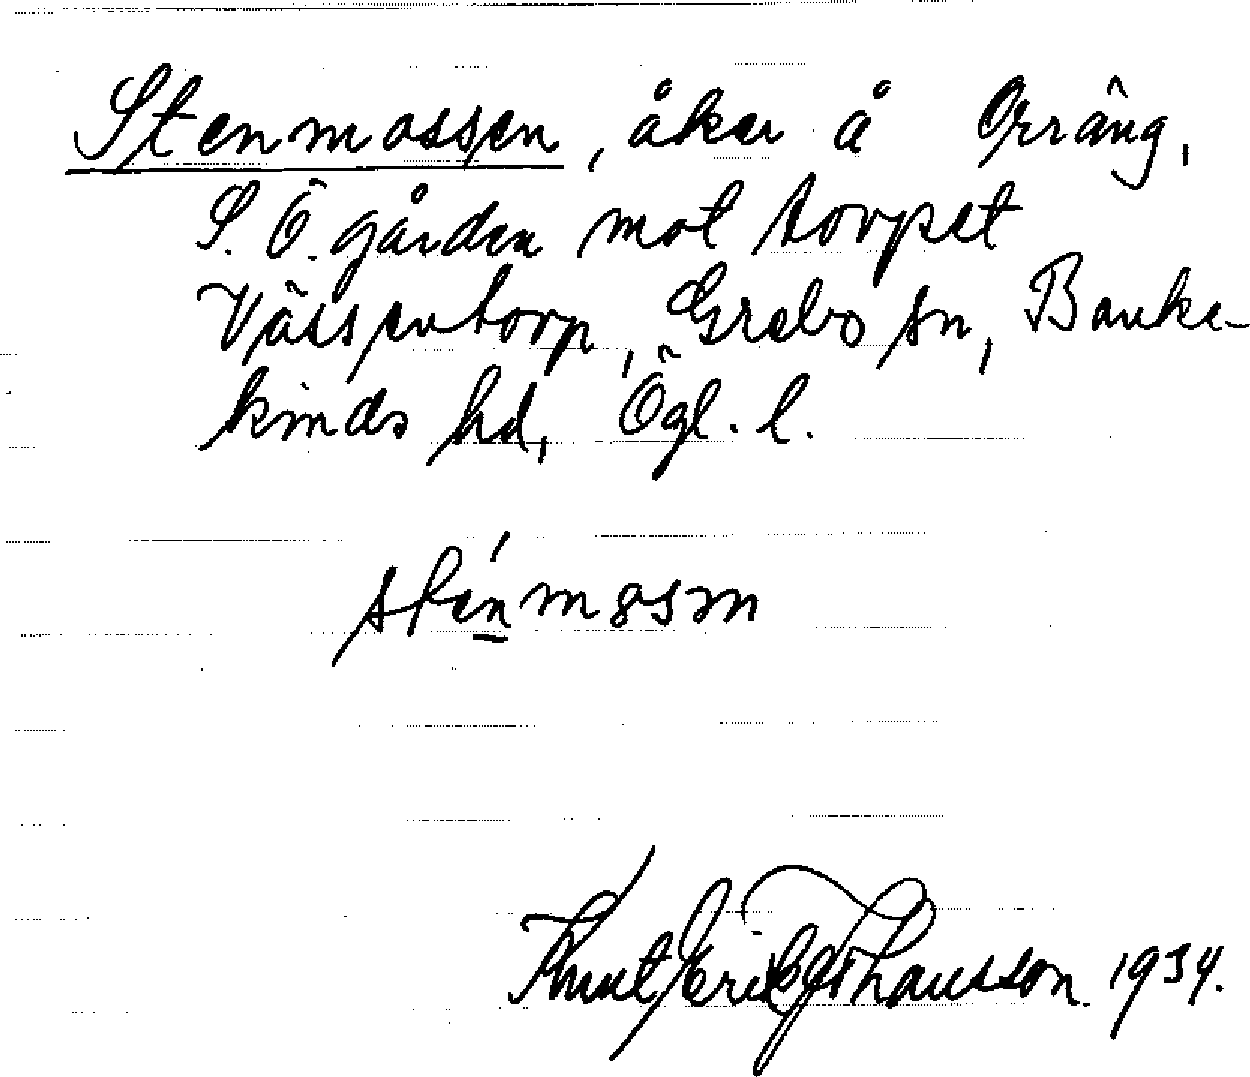 Stenmossen, åker å Orräng,
S. Ö. gården mot torpet
Vässentorp, Grebo sn, Banke-
kinds hd, Ögl. l.
stenmosm
Knut Erik Johansson 1934.